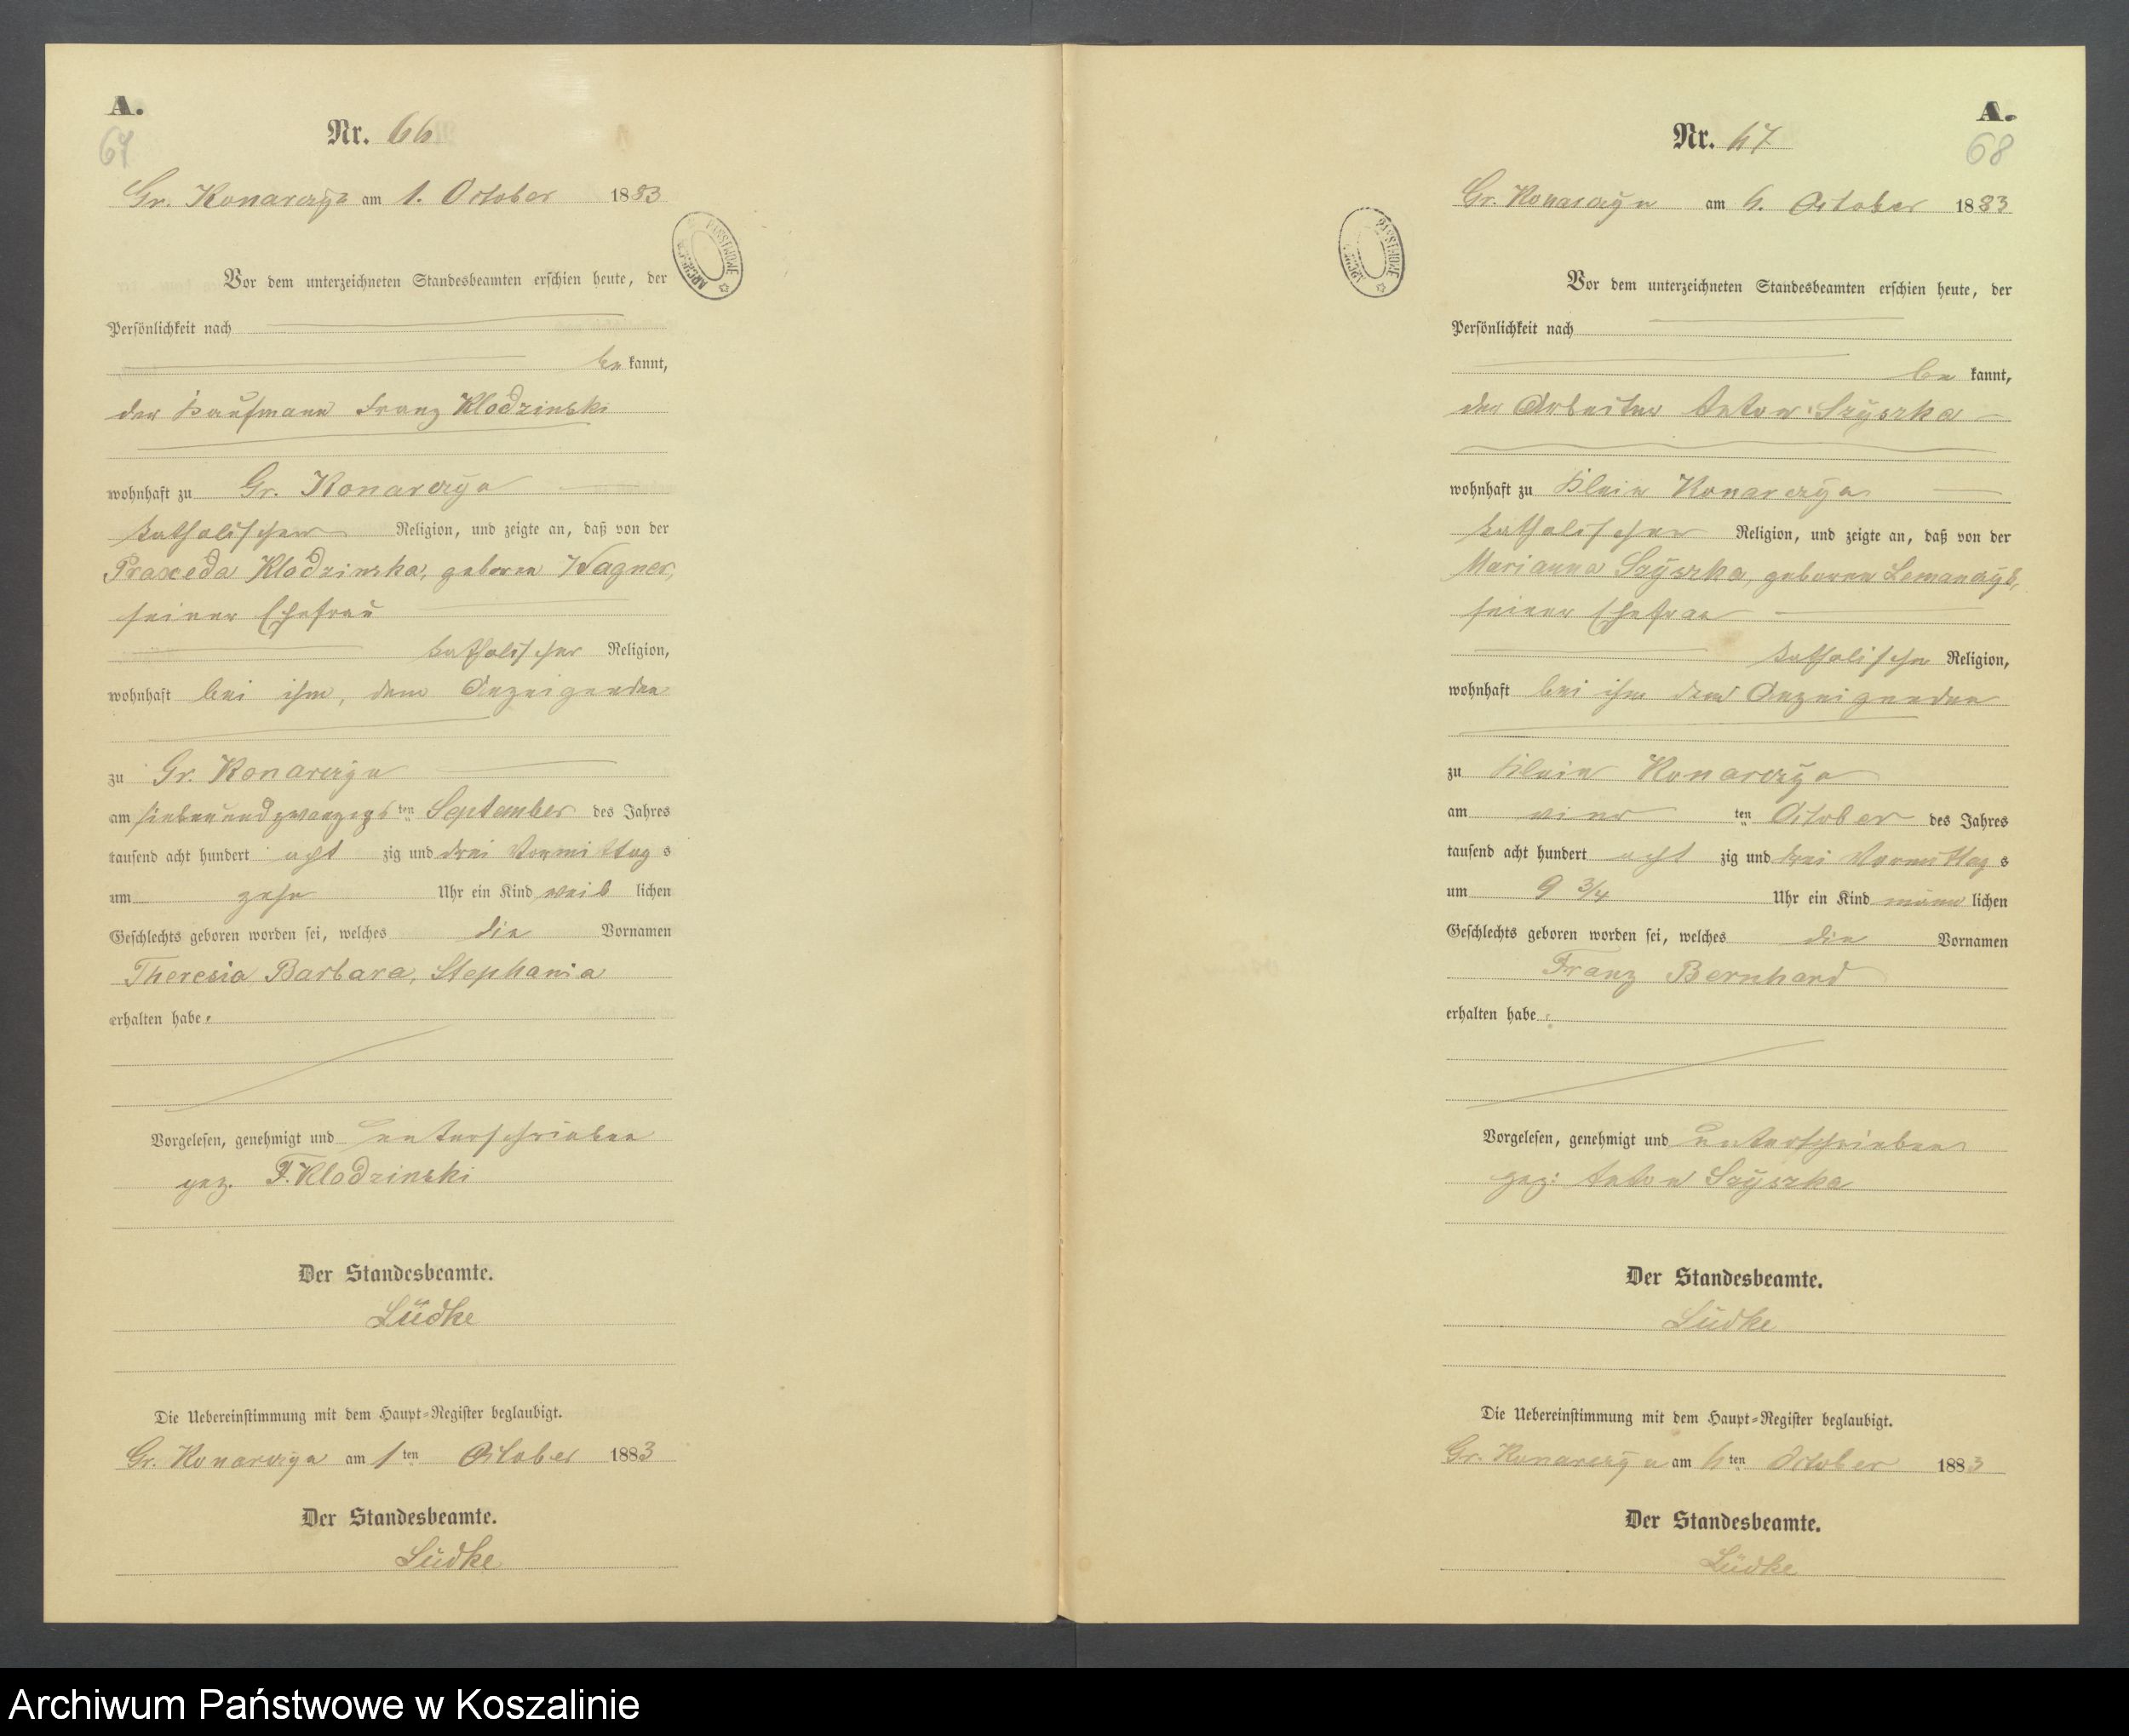 A.
67
Nr. 66
Gr. Konarczyn am 1. October 1883
Vor dem unterzeichneten Standesbeamten erschien heute, der
Persönlichkeit nach
be kannt,
der Kaufmann Franz Klodzinski
wohnhaft zu Gr. Konarczyn
katholischer Religion, und zeigte an, daß von der
Praxeda Klodzinska, geboren Wagner,
seiner Ehefrau
katholischer Religion,
wohnhaft bei ihm, dem Anzeigenden
zu Gr. Konarczyn
am siebenundzwanzigsten September des Jahres
tausend acht hundert acht zig und drei Vormittags
um zehn Uhr ein Kind weib lichen
Geschlechts geboren worden sei, welches die Vornamen
Theresia Barbara, Stephania
erhalten habe.
Vorgelesen, genehmigt und unterschrieben
gez. F. Klodzinski
Der Standesbeamte.
Lüdke
Die Uebereinstimmung mit dem Haupt-Register beglaubigt.
Gr. Konarczyn am 1ten October 1883
Der Standesbeamte.
Lüdke
A.
68
Nr. 67
Gr. Konarczyn am 6. October 1883
Vor dem unterzeichneten Standesbeamten erschien heute, der
Persönlichkeit nach
be kannt,
der Arbeiter Anton Szyszka
wohnhaft zu Klein Konarczyn
katholischer Religion, und zeigte an, daß von der
Marianna Szyszka, geboren Lemanczyk,
seiner Ehefrau
katholischer Religion,
wohnhaft bei ihm dem Anzeigenden
zu Klein Konarczyn
am vier ten October des Jahres
tausend acht hundert acht zig und drei Vormittags
um 9 3/4 Uhr ein Kind männ lichen
Geschlechts geboren worden sei, welches die Vornamen
Franz Bernhard
erhalten habe.
Vorgelesen, genehmigt und unterschrieben
gez: Anton Szyszka
Der Standesbeamte.
Lüdke
Die Uebereinstimmung mit dem Haupt-Register beglaubigt.
Gr. Konarczyn am 6ten October 1883
Der Standesbeamte.
Lüdke
Archiwum Państwowe w Koszalinie